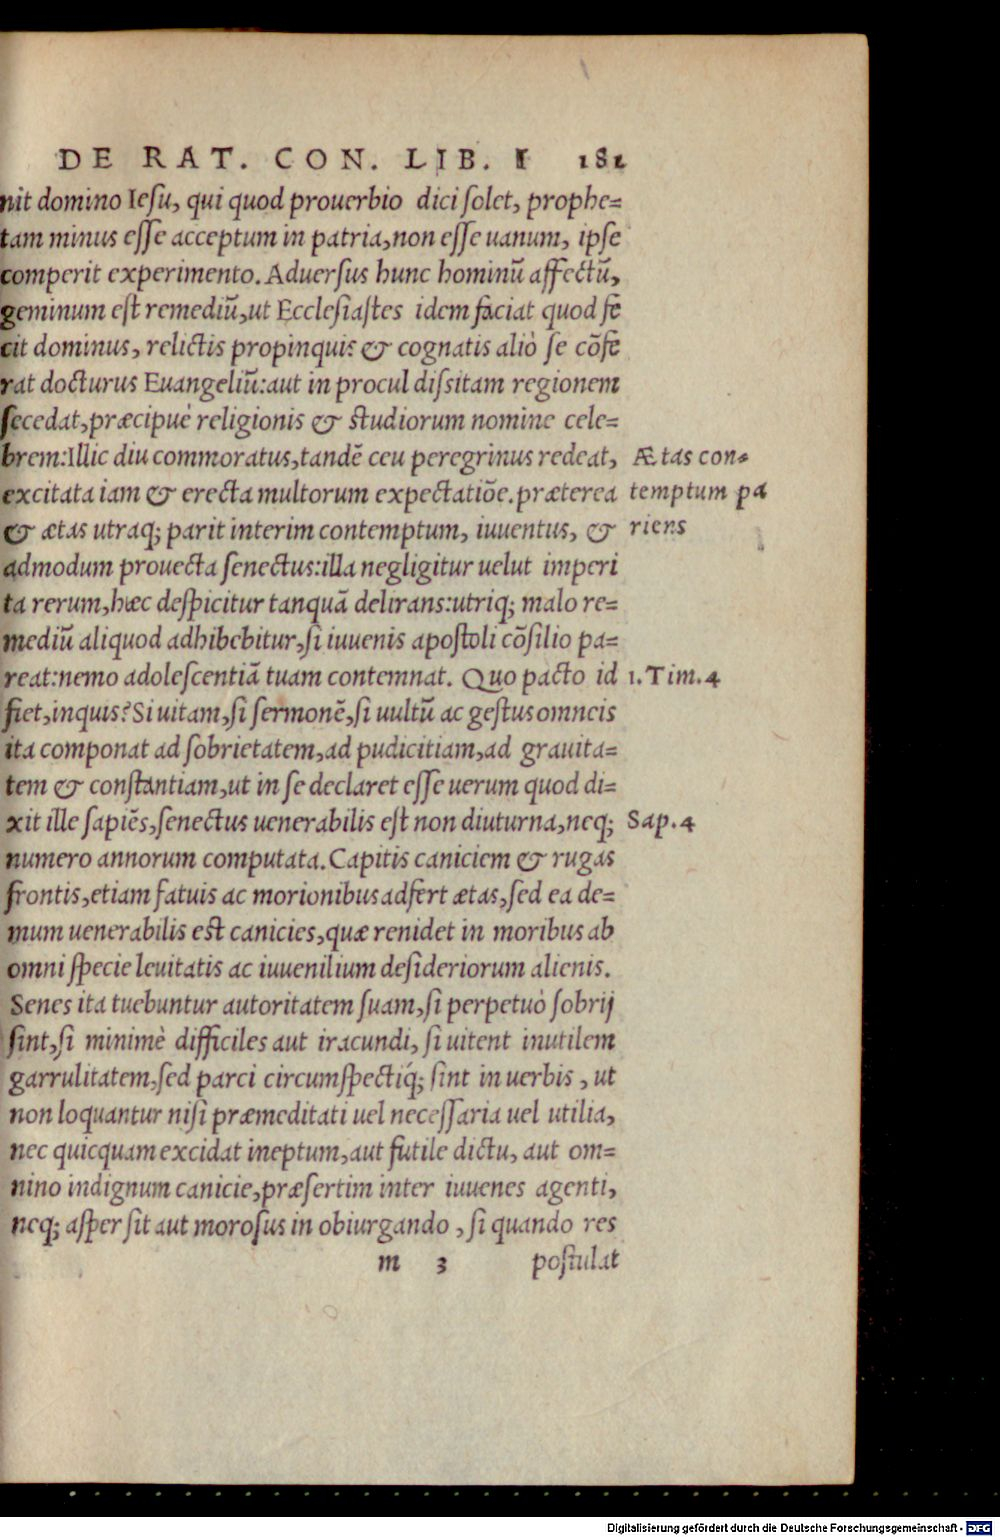 DE RAT. CON. LIB. I 181
nit domino Iesu, qui quod prouerbio dici solet, prophe=
tam minus esse acceptum in patria, non esse uanum, ipse
comperit experimento. Aduersus hunc hominū affectū,
geminum est remediū, ut Ecclesiastes idem faciat quod fe
cit dominus, relictis propinquis & cognatis aliò se cōfe
rat docturus Euangeliū: aut in procul dissitam regionem
secedat, præcipuè religionis & studiorum nomine cele=
brem: Illic diu commoratus, tandē ceu peregrinus redeat,
excitata iam & erecta multorum expectatiōe. præterea
& ætas utraq; parit interim contemptum, iuuentus, &
admodum prouecta senectus: illa negligitur uelut imperi
ta rerum, hæc despicitur tanquā delirans: utriq; malo re=
mediū aliquod adhibebitur, si iuuenis apostoli cōsilio pa=
reat: nemo adolescentiā tuam contemnat. Quo pacto id
fiet, inquis? Si uitam, si sermonē, si uultū ac gestus omneis
ita componat ad sobrietatem, ad pudicitiam, ad grauita=
tem & constantiam, ut in se declaret esse uerum quod di=
xit ille sapiēs, senectus uenerabilis est non diuturna, neq;
numero annorum computata. Capitis caniciem & rugas
frontis, etiam fatuis ac morionibus adfert ætas, sed ea de=
mum uenerabilis est canicies, quæ renidet in moribus ab
omni specie leuitatis ac iuuenilium desideriorum alienis.
Senes ita tuebuntur autoritatem suam, si perpetuò sobrij
sint, si minimè difficiles aut iracundi, si uitent inutilem
garrulitatem, sed parci circumspectiq́; sint in uerbis, ut
non loquantur nisi præmeditati uel necessaria uel utilia,
nec quicquam excidat ineptum, aut futile dictu, aut om=
nino indignum canicie, præsertim inter iuuenes agenti,
neq; asper sit aut morosus in obiurgando, si quando res
m 3 postulat
Ætas con=
temptum pa
riens
1. Tim. 4
Sap. 4
Digitalisierung gefördert durch die Deutsche Forschungsgemeinschaft - DFG